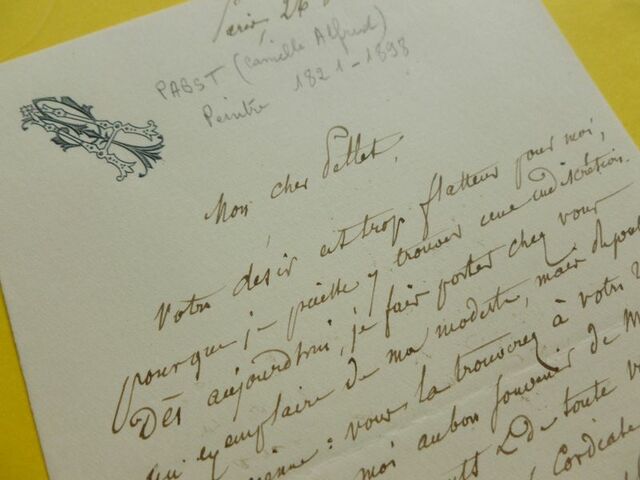 26
PABST (Camille Alfred)
Peintre 1821-1898
Mon cher Pellet,
Votre désir est trop flatteur pour moi,
pour que je puisse y trouver une indiscrétion.
Dès aujourd'hui, je fais porter chez vous
un exemplaire de ma modeste, mais
: vous la trouverez à votre
moi au bon souvenir de M
de toute
Cordiale